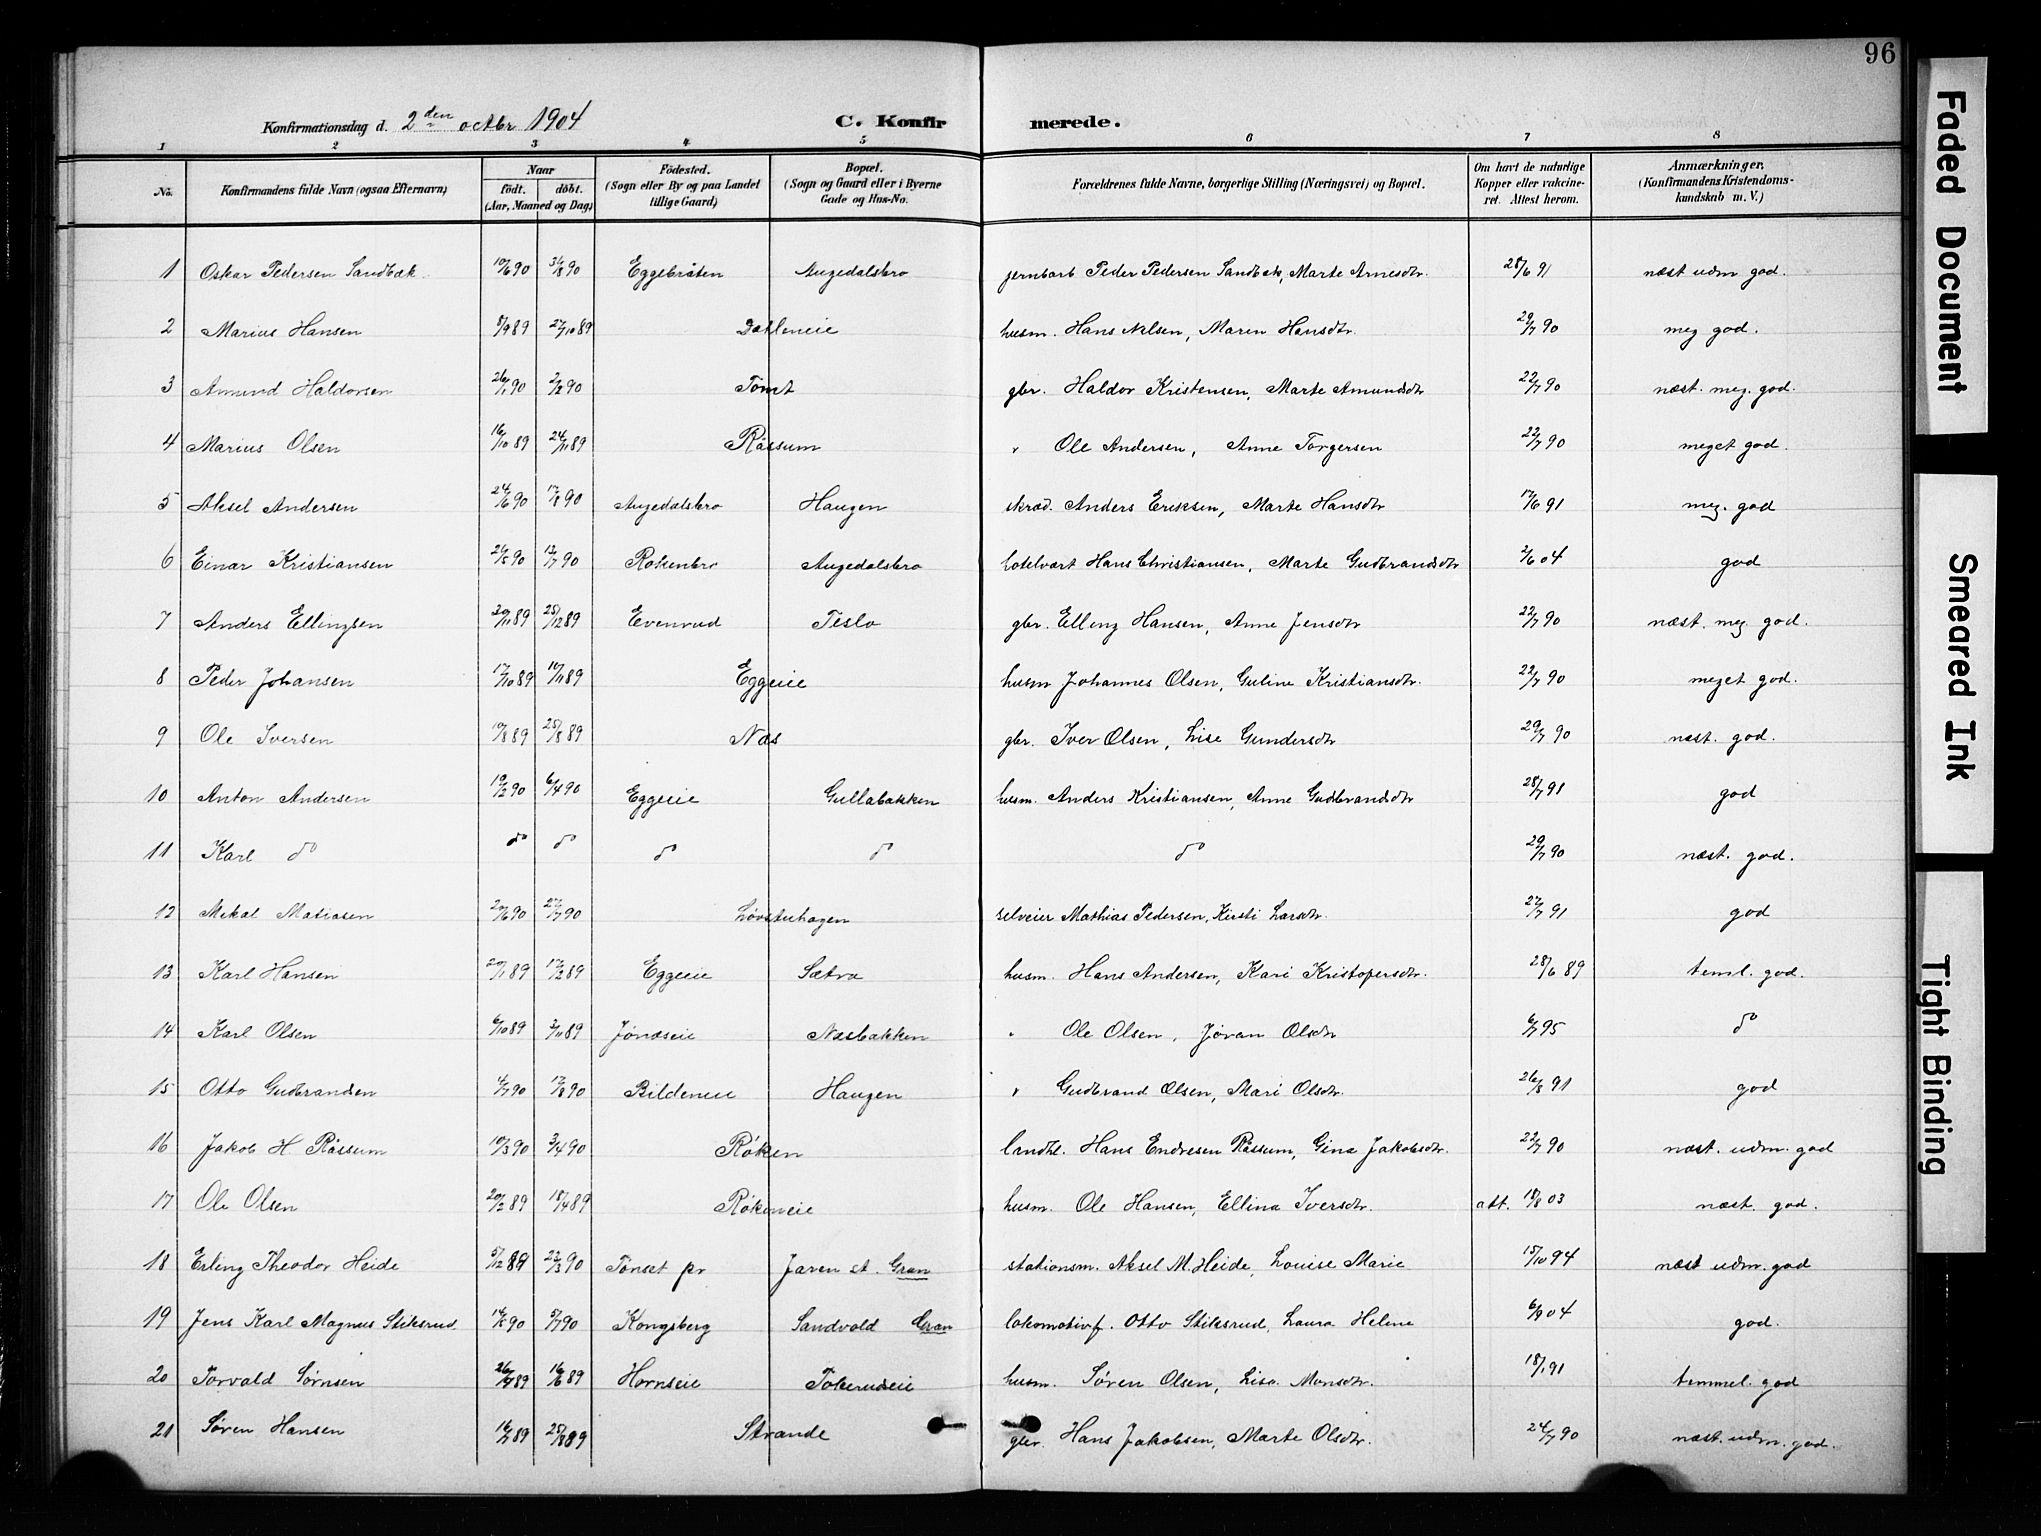 96
Konfirmationsdag d. 2den octbr 1904 C. Konfirmerede.
1 2 3 4 5 6 7 8
No. Konfirmandens fulde Navn (ogsaa Efternavn) Naar født. døbt. (Aar, Maaned og Dag) Fødested. (Sogn eller By og paa Landet tillige Gaard) Bopæl. (Sogn og Gaard eller i Byerne Gade og Hus-No. Forældrenes fulde Navne, borgerlige Stilling (Næringsvei) og Bopæl. Om havt de naturlige Kopper eller vakcineret. Attest herom. Anmærkninger. (Konfirmandens Kristendomskundskab m. V.)
1 Oskar Pedersen Sandbæk 10/6 90 31/8 90 Eggebråten Augedalsbro jernbarb Peder Pedersen Sandbæk, Marte Arnesdtr. 28/6 91 næst udm god.
2 Marius Hansen 8/9 89 27/10 89 Dæhleneie husm. Hans Nilsen, Maren Hansdtr. 29/7 90 meg god.
3 Amund Haldorsen 26/1 90 2/3 90 Tømt gbr. Haldor Kristensen, Marte Amundsdtr 22/7 90 næst. meg. god.
4 Marius Olsen 16/10 89 24/11 89 Råssum " Ole Andersen, Anne Torgersen 22/7 90 meget god.
5 Aksel Andersen 24/6 90 17/8 90 Augedalsbro Haugen skræd. Anders Eriksen, Marte Hansdtr 17/6 91 meg. god
6 Einar Kristiansen 26/5 90 13/7 90 Røkenbro Augedalsbro hotelvært Hans Christiansen, Marte Gudbrandsdtr 2/6 04 god
7 Anders Ellingsen 20/11 89 25/12 89 Evenrud Teslo gbr. Elling Hansen, Anne Jensdtr 22/7 90 næst. meg. god.
8 Peder Johansen 17/10 89 10/11 89 Eggeeie husm Johannes Olsen, Guline Kristiansdtr. 22/7 90 meget god.
9 Ole Iversen 10/8 89 25/8 89 Næs gbr. Iver Olsen, Lise Gundersdtr 29/7 90 næst. god.
10 Anton Andersen 19/2 90 6/4 90 Eggeeie Gullabakken husm. Anders Kristiansen, Anne Gudbrandsdtr 28/7 91 god
11 Karl do do do do do do 29/7 90 næst. god.
12 Mikal Matiasen 20/6 90 27/7 90 Løvstuhagen selveier Mathias Pedersen, Kirsti Larsdtr. 27/7 91 god
13 Karl Hansen 20/1 89 17/3 89 Eggeeie Sætra husm. Hans Andersen, Kari Kristofersdtr. 28/6 89 teml. god.
14 Karl Olsen 6/10 89 3/11 89 Jønæseie Næsbakken " Ole Olsen, Jøran Olsdtr 6/7 95 do
15 Otto Gudbrandsen 4/7 90 17/8 90 Bildeneie Haugen " Gudbrand Olsen, Mari Olsdtr. 26/8 91 god
16 Jakob H. Råssum 10/3 90 3/4 90 Røken landhl. Hans Endresen Råssum, Gina Jakobsdtr. 22/7 90 næst. udm. god
17 Ole Olsen 20/2 89 18/4 89 Røkeneie husm. Ole Hansen, Ellina Iversdtr. att. 18/8 03 næst. god.
18 Erling Theodor Heide 5/12 89 23/3 90 Tønset pr Jaren st. Gran stationsm. Aksel M. Heide, Louise Marie 15/10 94 næst udm. god
19 Jens Karl Magnus Stiksrud 14/5 90 5/7 90 Kongsberg Sandvold Gran lokomotivf. Otto Stiksrud, Laura Helene 6/9 04 god.
20 Torvald Sørnsen 26/4 89 16/6 89 Hornseie Tokerudseie husm. Søren Olsen, Lisa Monsdtr. 18/1 91 temmel. god
21 Søren Hansen 16/7 89 25/8 89 Strande gbr. Hans Jakobsen, Marte Olsdtr. 24/7 90 næst. udm. god.
Faded Document
Smeared Ink
Tight Binding